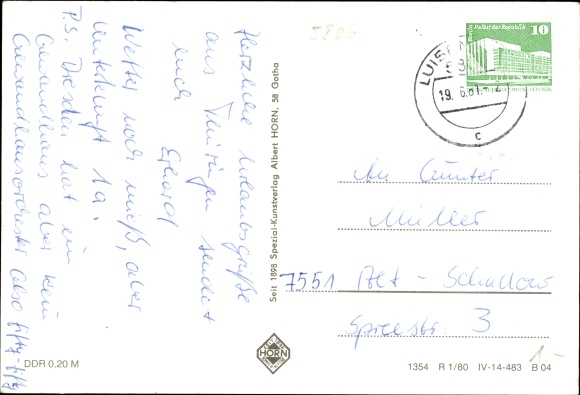 Herzliche Urlaubsgrüße
aus Thüringen sendet
euch
Erhard
Wetter noch mieß, aber
Unterkunft 1a.
P.S. Dresden hat ein
Gewandhaus aber kein
Gewandhausorchester also fifty-fifty
DDR 0,20 M
Seit 1898 Spezial-Kunstverlag Albert HORN, 58 Gotha
HORN
Berlin Palast der Republik
10
LUISEN
19. 6.81.-12
c
An Günter
Müller
7551 Alt-Schadow
Spreestr. 3
1.-
1354 R 1/80 IV-14-483 B 04